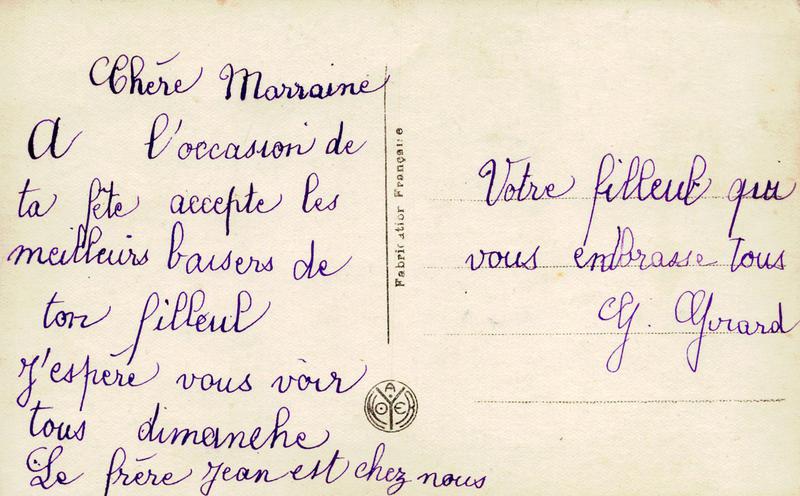 Chére Marraine
A l'occasion de
ta fête accepte les
meilleurs baisers de
ton filleul
J'espére vous voir
tous dimanche
Le frére Jean est chez nous
Fabrication Française
Votre filleul qui
vous embrasse tous
G. Girard